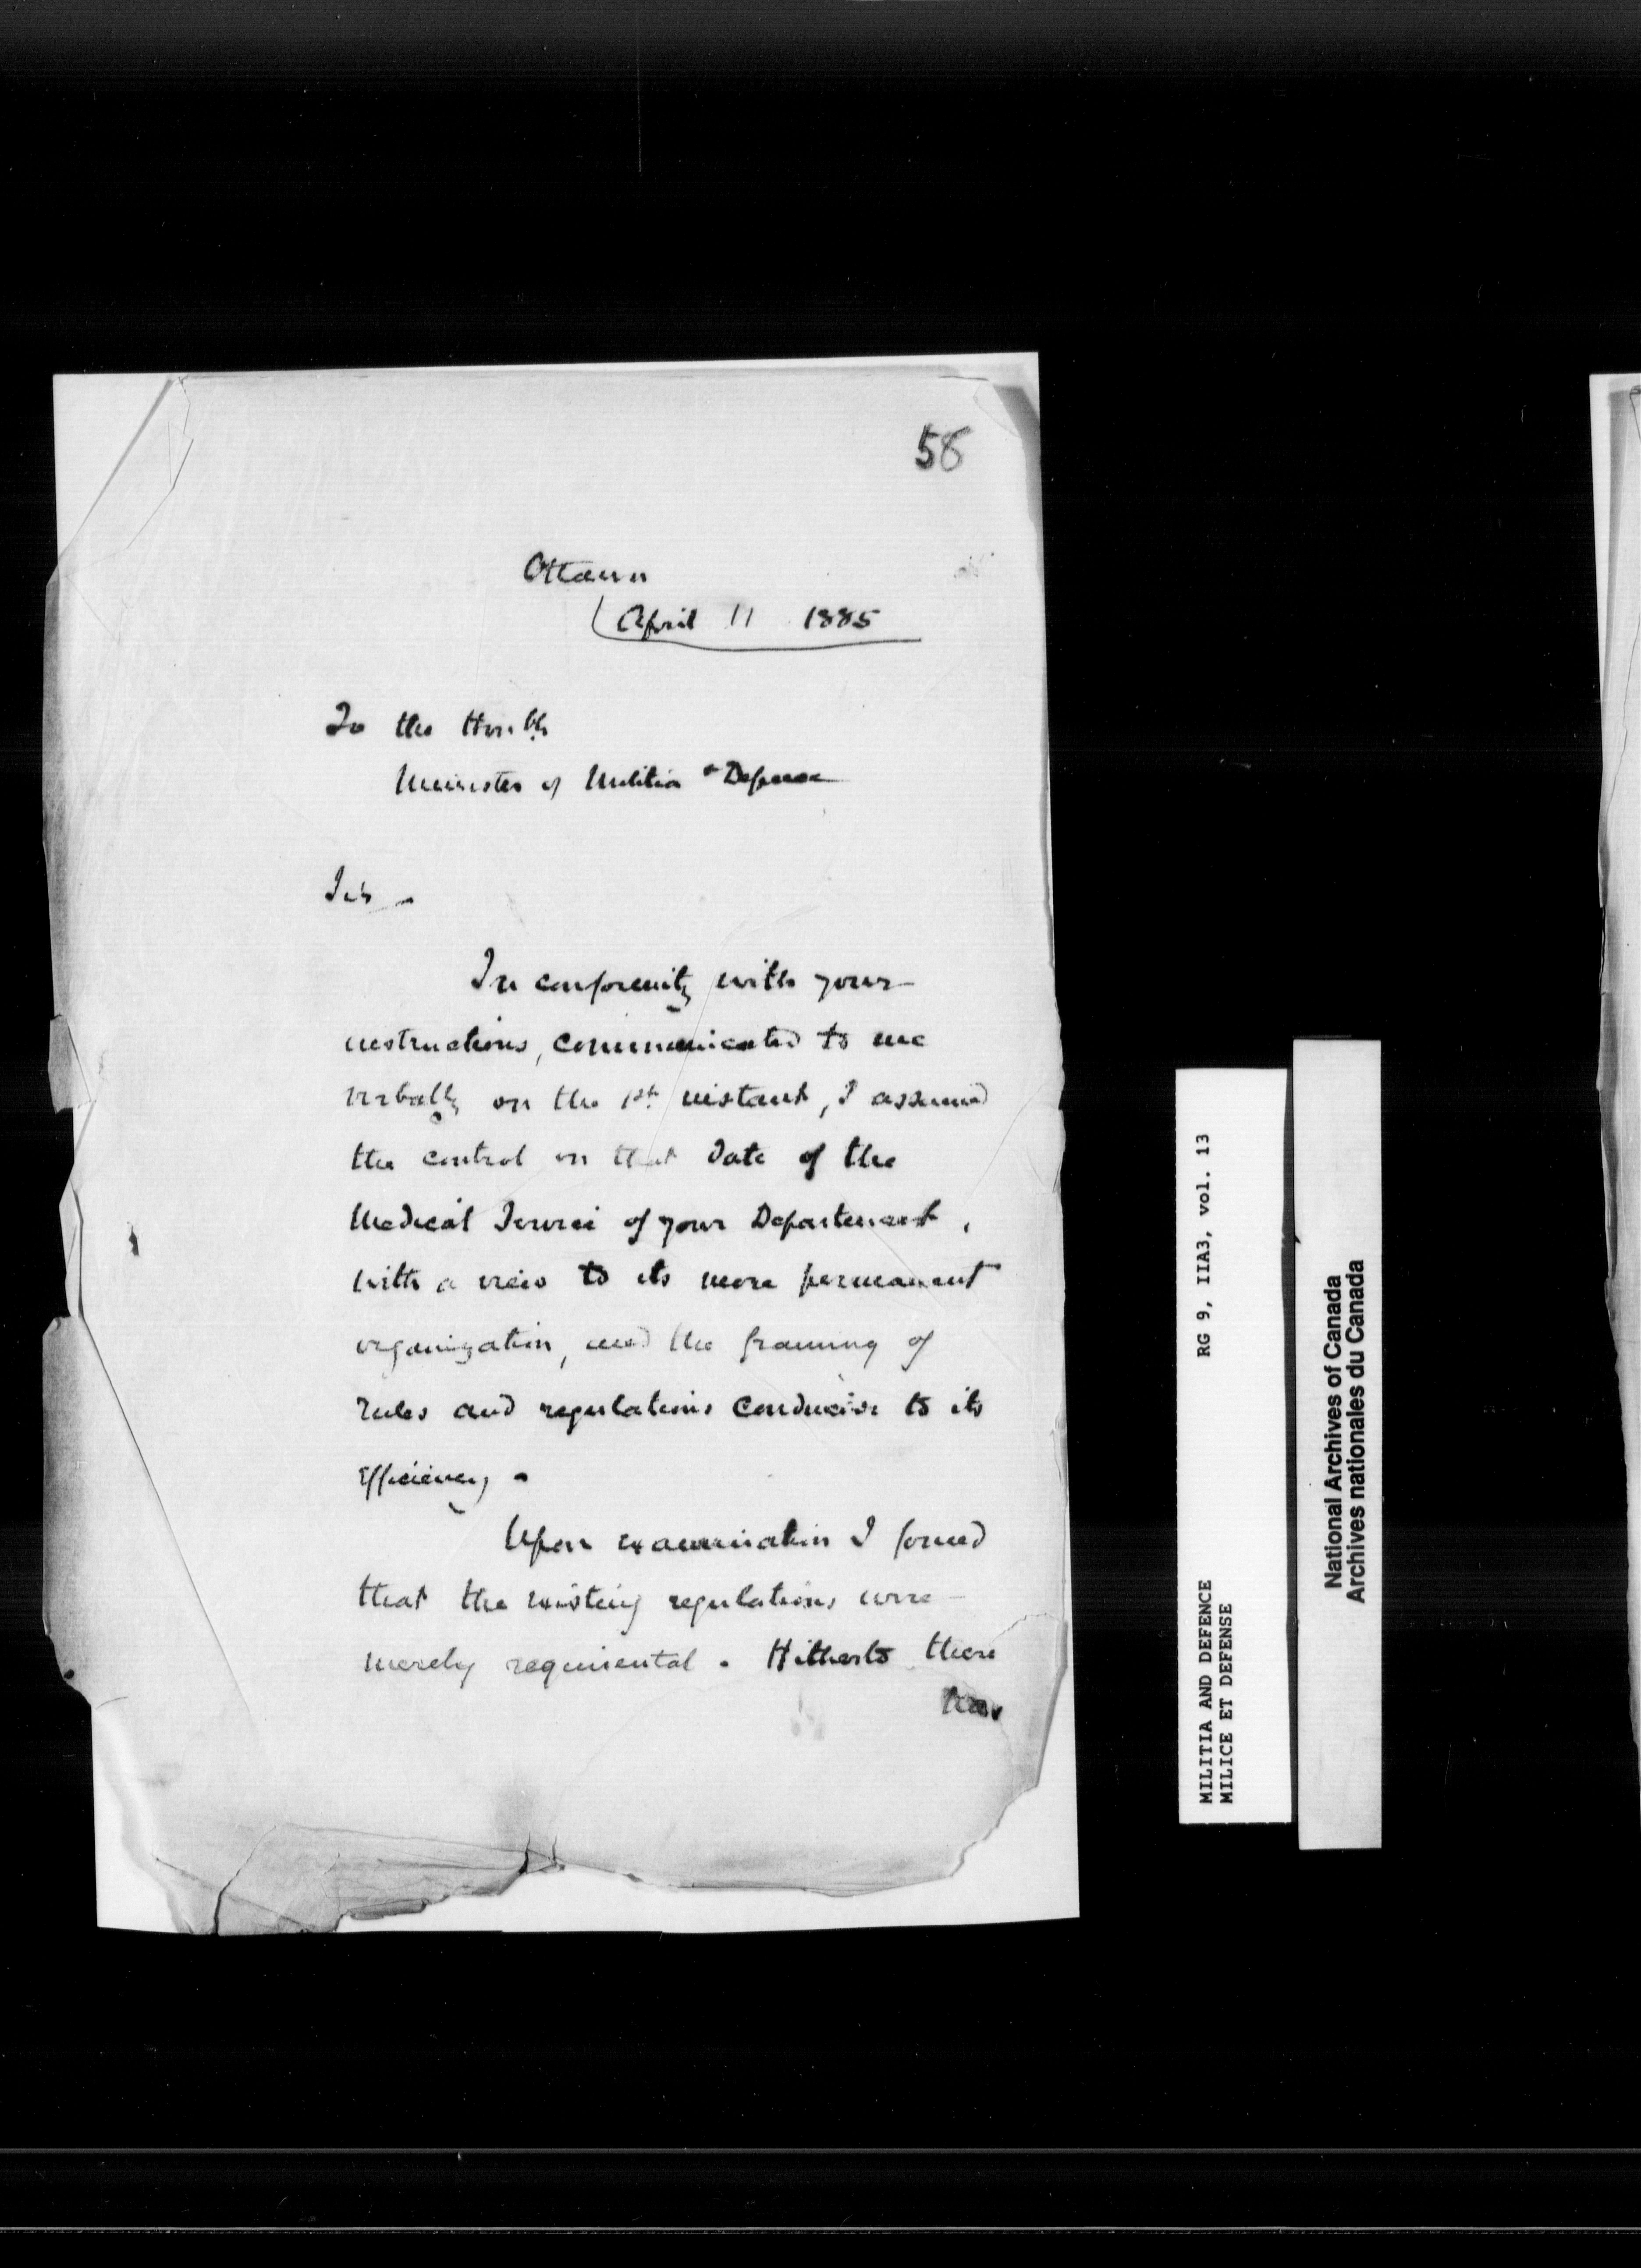 58
Ottawa
April 11 1885
To the Honble
Minister of Militia & Defence
Sir -
In conformity with your
instructions, communicated to me
verbally on the 1st instant, I assumed
the control on that date of the
Medical Service of your Department,
with a view to its more permanent
organization, and the framing of
rules and regulations conducive to its
efficiency.
Upon examination I found
that the existing regulations were
merely regimental. Hitherto there
has
MILITIA AND DEFENCE RG 9, IIA3, vol. 13
MILICE ET DEFENSE
National Archives of Canada
Archives nationales du Canada